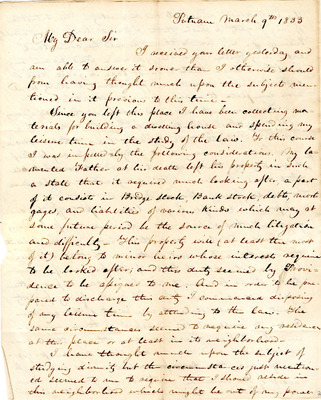 Putnam March 9th 1833
My Dear Sir
I received your letter yesterday and
am able to answer it sooner than I otherwise should
from having thought much upon the subject men
tioned in it previous to this time -
Since you left this place I have been collecting ma
terials for building a dwelling house and spending my
leisure time in the study of the Law. To this course
I was impelled by the following considerations. My la
mented Father at his death left his property in such
a state that it required much looking after, a part
of it consists in Bridge Stock, Bank stock, debts, mort
gages, and liabilities of various kinds which may at
some future period be the source of much litigation
and difficulty - This property will (at least the most
of it) belong to minor heirs whose interests require
to be looked after, and this duty seemed by Provi
dence to be assigned to me. And in order to be pre
pared to discharge this duty I commenced disposing
of my leisure time by attending to the law. The
same circumstances seemed to require my residence
at this place or at least in its neighborhood.
I have thought much upon the subject of
studying divinity but the circumstances just mention
ed seemed to me to require that I should reside in
this neighborhood which might be out of my power